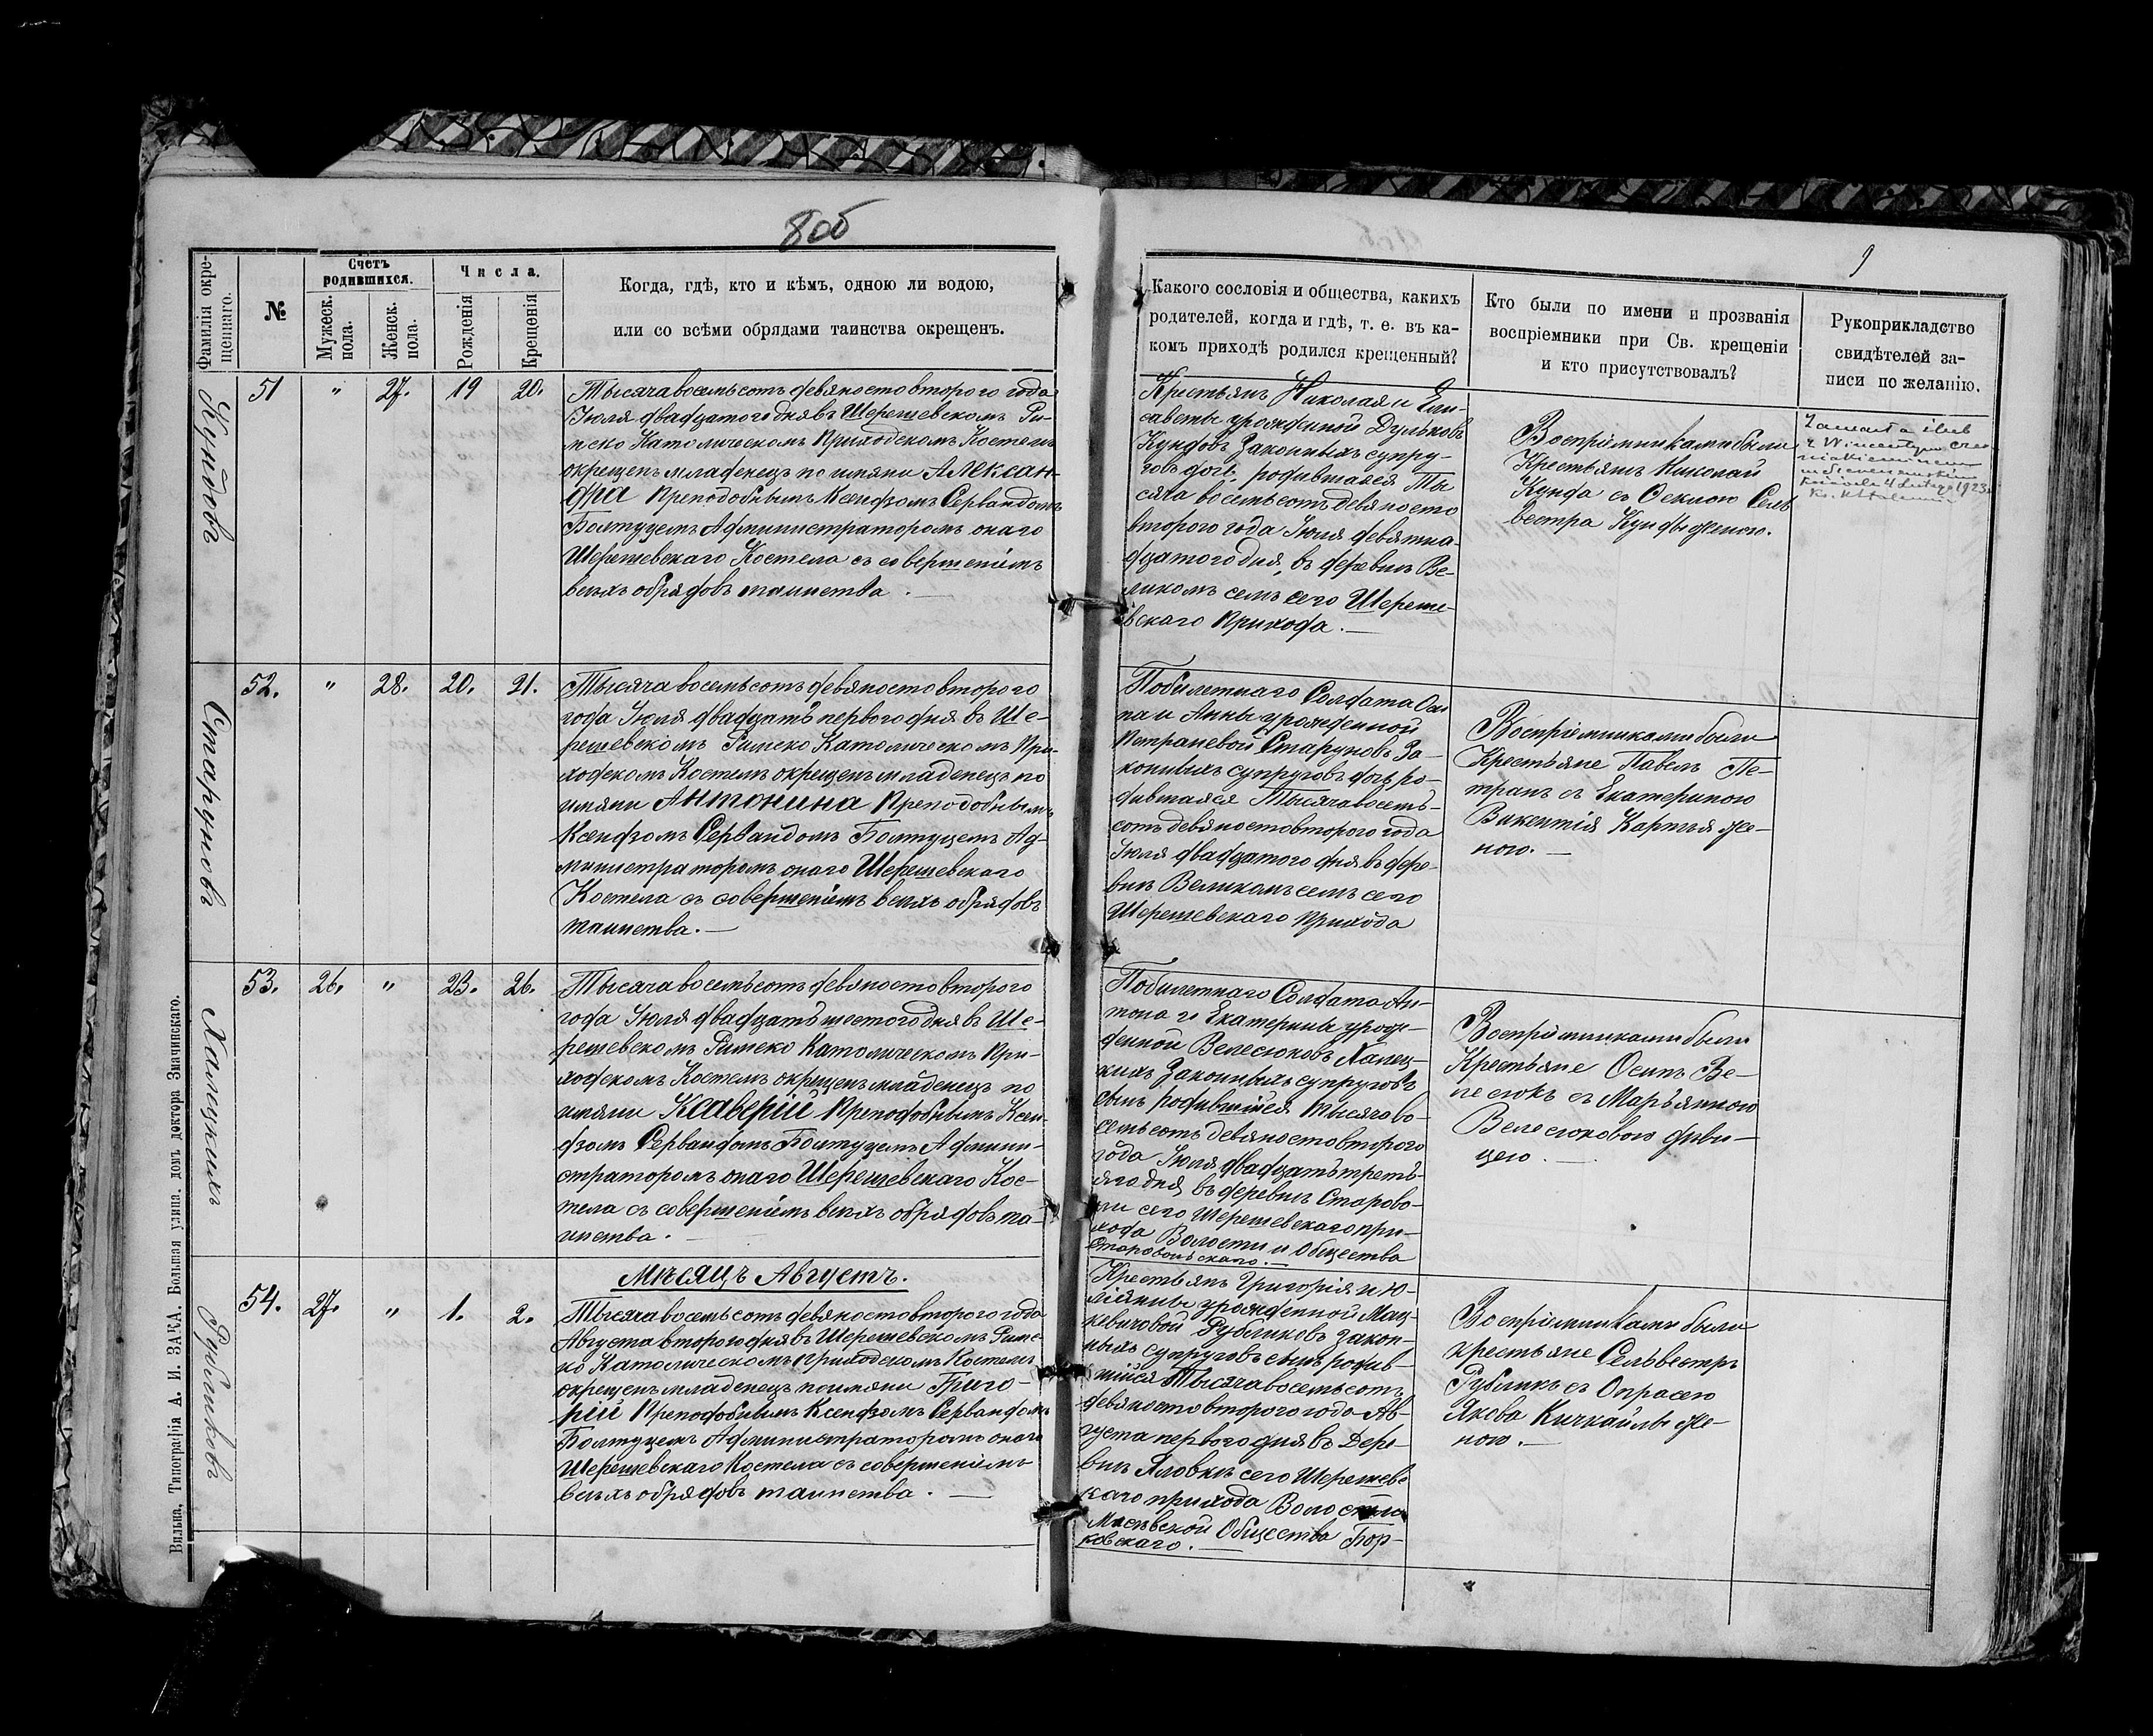 8об
9
Фамилія окре-
щеннаго.
№
Счетъ
родившихся.
Мужеск.
пола.
Женск.
пола.
Числа.
Рожденія
Крещенія
Когда, гдѣ, кто и кѣмъ, одною ли водою,
или со всѣми обрядами таинства окрещенъ.
Какого сословія и общества, какихъ
родителей, когда и гдѣ, т. е. въ ка-
комъ приходѣ родился крещенный?
Кто были по имени и прозванія
воспріемники при Св. крещеніи
и кто присутствовалъ?
Рукоприкладство
свидѣтелей за-
писи по желанію.
Кундовъ
51
"
27.
19
20.
Тысяча восемьсотъ девяносто второго года
Іюля двадцатого дня въ Шерешевскомъ Ри-
мско Католическомъ Приходскомъ Костелѣ
окрещенъ младенецъ по имяни Алексан-
дра Преподобнымъ Ксендзомъ Сервандомъ
Болтуцемъ Администраторомъ онаго
Шерешевскаго Костела съ совершеніемъ
всѣхъ обрядовъ таинства.
Крестьянъ Николая и Ели-
саветы урожденной Дульковъ
Кундовъ Законныхъ супру-
говъ дочь, родившаяся Ты
сяча восемьсотъ девяносто
второго года Іюля девятна-
дцатого дня, въ деревнѣ Ве-
ликомъ селѣ сего Шереше-
вскаго Прихода.
Воспріемниками были
Крестьянъ Николай
Кунда съ Оеклою Силь
вестра Кунды женою.
Zawarła ślub
z Wincentym
4 Lutego 1923
Старуновъ
52.
"
28.
20.
21.
Тысяча восемьсотъ девяносто второго
года Іюля двадцать первого дня въ Ше-
решевскомъ Римско Католическомъ При-
ходскомъ Костелѣ окрещенъ младенецъ по
имяни Антонина Преподобнымъ
Ксендзомъ Сервандомъ Болтуцемъ Ад-
министраторомъ онаго Шерешевскаго
Костела съ совершеніемъ всѣхъ обрядовъ
таинства.
Побилетнаго Солдата Оси
па и Анны урожденной
Петраневой Старуновъ За-
конныхъ супруговъ дочь ро-
дившаяся Тысяча восемь-
сотъ девяносто второго года
Іюля двадцатого дня въ дере-
внѣ Великомъ селѣ сего
Шерешевскаго Прихода
Воспріемниками были
Крестьяне Павелъ Пе-
транъ съ Екатериною
Викентія Карпъя же-
ною.
Халецкихъ
53.
26.
"
23.
26.
Тысяча восемьсотъ девяносто второго
года Іюля двадцать шестого дня въ Ше-
решевскомъ Римско Католическомъ При-
ходскомъ Костелѣ окрещенъ младенецъ по
имяни Ксаверій Преподобнымъ Ксен-
дзомъ Сервандомъ Болтуцемъ Админи-
страторомъ онаго Шерешевскаго Кос-
тела съ совершеніемъ всѣхъ обрядовъ та-
инства.
Побилетнаго Солдата Ан-
тона и Екатерины урож-
денной Велесюковъ Халец-
кихъ Законныхъ супруговъ
сынъ родившійся тысяча во-
семьсотъ девяносто второго
года Іюля двадцать треть-
яго дня въ деревнѣ Старово-
ли сего Шерешевскаго при-
хода Волости и Общества
Старовольскаго.
Воспріемниками были
Крестьяне Осипъ Ве-
лесюкъ съ Марьянною
Велесюковою дѣви-
цею.
Рубликовъ
54.
27.
"
1.
2.
Мѣсяцъ Августъ.
Тысяча восемьсотъ девяносто второго года
Августа второго дня въ Шерешевскомъ Римс-
ко Католическомъ Приходскомъ Костелѣ
окрещенъ младенецъ по имяни Григо-
рій Преподобнымъ Ксендзомъ Сервандомъ
Болтуцемъ Администраторомъ онаго
Шерешевскаго Костела съ совершеніемъ
всѣхъ обрядовъ таинства.
Крестьянъ Григорія и Ю-
ліянны урожденной Мац-
кевичовой Рубликовъ Закон-
ныхъ супруговъ сынъ родив-
шійся Тысяча восемьсотъ
девяносто второго года Ав-
густа первого дня въ Дере-
внѣ Яловкѣ сего Шерешевс
каго прихода Волости
Масѣвской Общества Бор-
ковскаго.
Воспріемниками были
крестьяне Сельвестръ
Рубликъ съ Опрасею
Якова Кичкайлы же-
ною.
Вильна, Типографія А. И. ЗАКА. Большая улица, домъ доктора Змачинскаго.